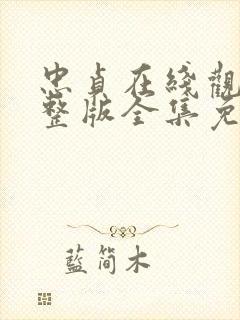 忠貞在綫觀
整版全集免
藍簡木